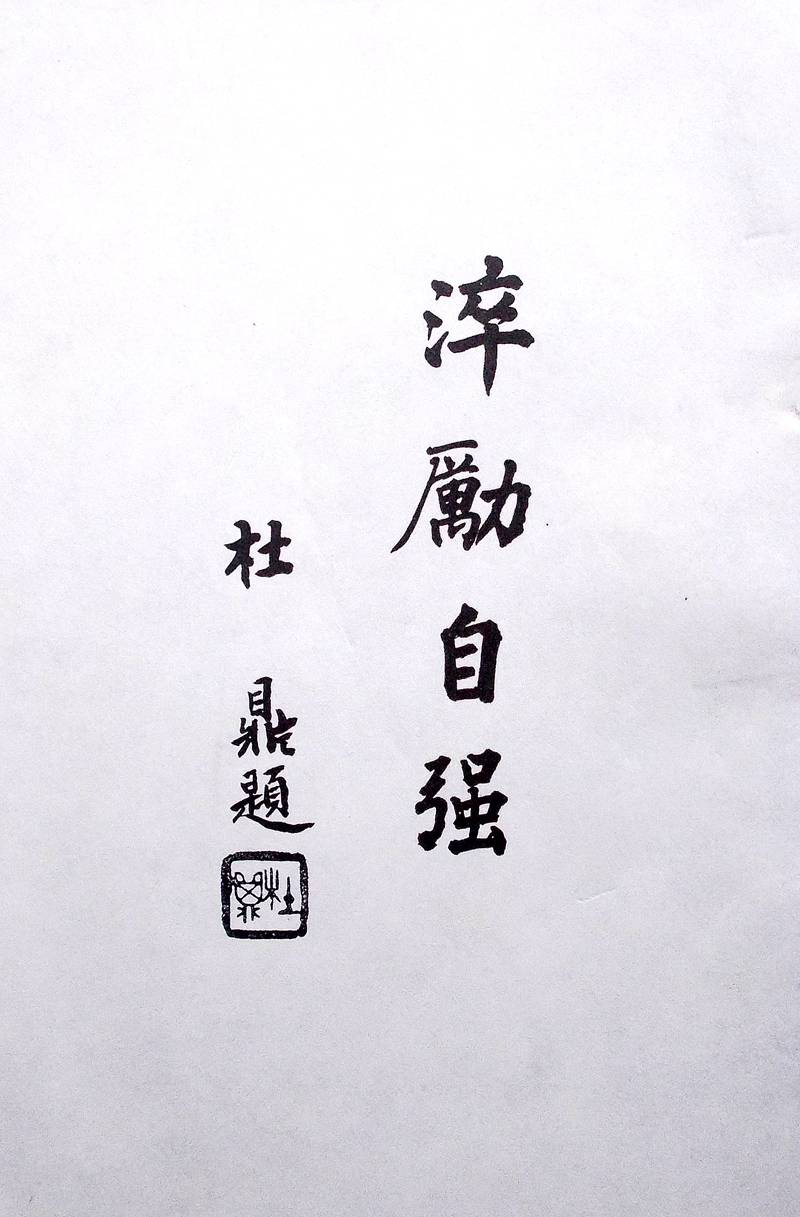 淬勵自强
杜鼎題
杜鼎